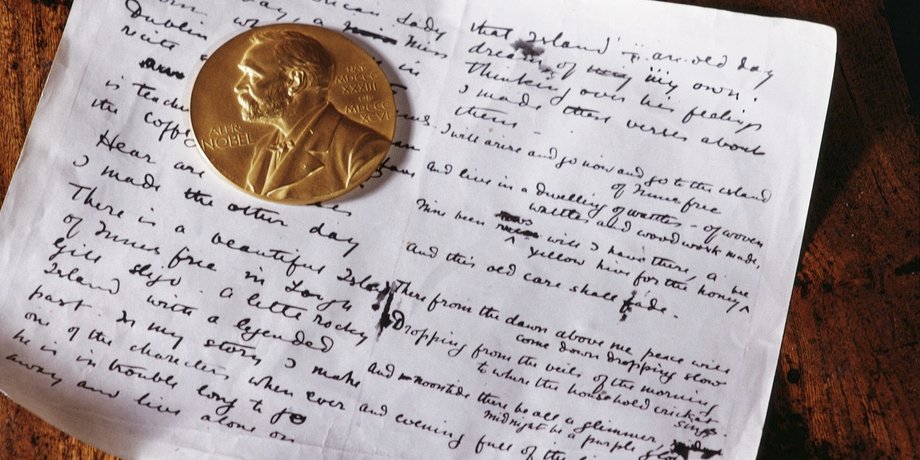 Dublin who, a Miss
recite in
is teach
the coffe
Hear are
I made the other day
There is a beautiful Island
of Innis free in Lough
Gill Sligo. A little rocky
Island with a legended
past. In my story I make
one of the characters when ever
he is in trouble long to go
away and live alone on
ALFR.
NOBEL
NAT.
MDCCC
XXXIII
OB.
MDCCC
XCVI
that Island – an old day
dream of my own.
Thinking over his feelings
I made these verses about
them –
I will arise and go now and go to the island
of Innis free
and live in a dwelling of wattles – of woven
wattles and wood work made,
Nine bean rows will I have there, a
yellow hive for the honey bee
And this old care shall fade.
There from the dawn above me peace will
come down dropping slow
Dropping from the veils of the morning
to where the household cricket
sings.
And noontide there be all a glimmer,
midnight be a purple glow
and evening full of the